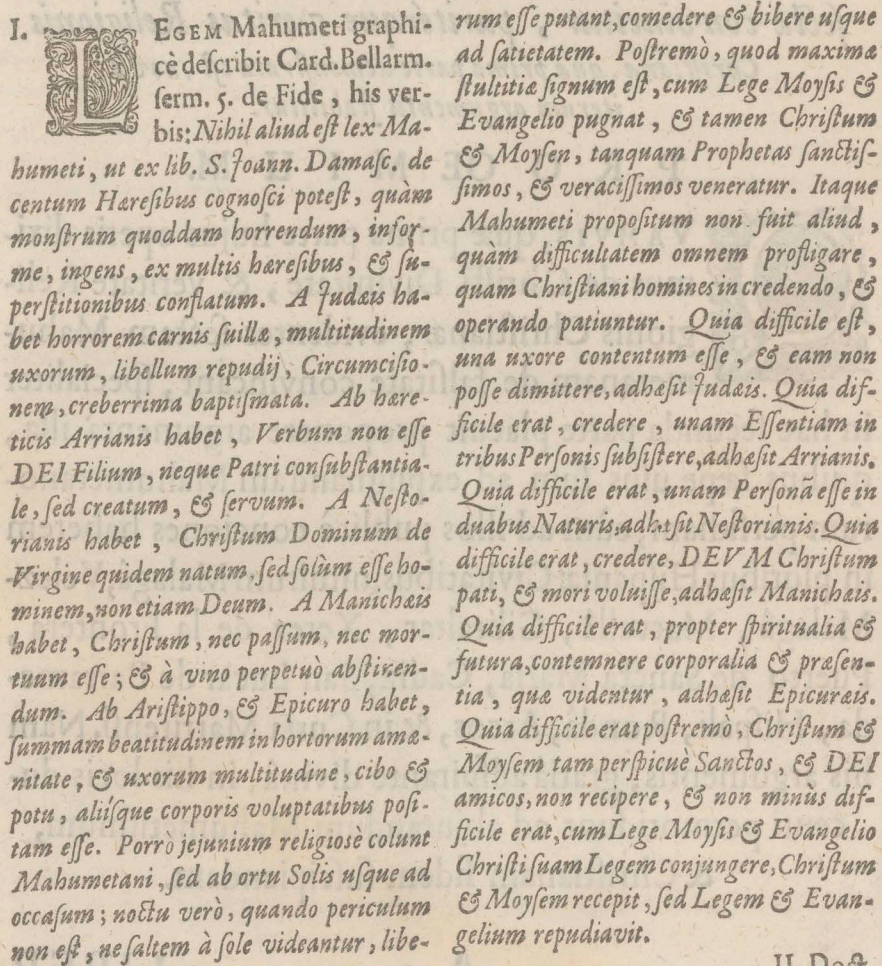 I. LEGEM Mahumeti graphi-
cè deſcribit Card. Bellarm.
ſerm. 5. de Fide, his ver-
bis: Nihil aliud eſt lex Ma-
humeti, ut ex lib. S. Joann. Damaſc. de
centum Hæreſibus cognoſci poteſt, quàm
monſtrum quoddam horrendum, infor-
me, ingens, ex multis hæreſibus, & ſu-
perſtitionibus conflatum. A Judæis ha-
bet horrorem carnis ſuillæ, multitudinem
uxorum, libellum repudij, Circumciſio-
nem, creberrima baptiſmata. Ab hære-
ticis Arrianis habet, Verbum non eſſe
DEI Filium, neque Patri conſubſtantia-
le, ſed creatum, & ſervum. A Neſto-
rianis habet, Chriſtum Dominum de
Virgine quidem natum, ſed ſolùm eſſe ho-
minem, non etiam Deum. A Manichæis
habet, Chriſtum, nec paſſum, nec mor-
tuum eſſe; & à vino perpetuò abſtinen-
dum. Ab Ariſtippo, & Epicuro habet,
ſummam beatitudinem in hortorum amæ-
nitate, & uxorum multitudine, cibo &
potu, aliíſque corporis voluptatibus poſi-
tam eſſe. Porrò jejunium religiosè colunt
Mahumetani, ſed ab ortu Solis uſque ad
occaſum; noctu verò, quando periculum
non eſt, ne ſaltem à ſole videantur, libe-
rum eſſe putant, comedere & bibere uſque
ad ſatietatem. Poſtremò, quod maximæ
ſtultitiæ ſignum eſt, cum Lege Moyſis &
Evangelio pugnat, & tamen Chriſtum
& Moyſen, tanquam Prophetas ſanctiſ-
ſimos, & veraciſſimos veneratur. Itaque
Mahumeti propoſitum non fuit aliud,
quàm difficultatem omnem profligare,
quam Chriſtiani homines in credendo, &
operando patiuntur. Quia difficile eſt,
una uxore contentum eſſe, & eam non
poſſe dimittere, adhæſit Judæis. Quia dif-
ficile erat, credere, unam Eſſentiam in
tribus Perſonis ſubſiſtere, adhæſit Arrianis.
Quia difficile erat, unam Perſonã eſſe in
duabus Naturis, adhæſit Neſtorianis. Quia
difficile erat, credere, DEVM Chriſtum
pati, & mori voluiſſe, adhæſit Manichæis.
Quia difficile erat, propter ſpiritualia &
futura, contemnere corporalia & præſen-
tia, quæ videntur, adhæſit Epicuræis.
Quia difficile erat poſtremò, Chriſtum &
Moyſem tam perſpicuè Sanctos, & DEI
amicos, non recipere, & non minùs dif-
ficile erat, cum Lege Moyſis & Evangelio
Chriſti ſuam Legem conjungere, Chriſtum
& Moyſem recepit, ſed Legem & Evan-
gelium repudiavit.